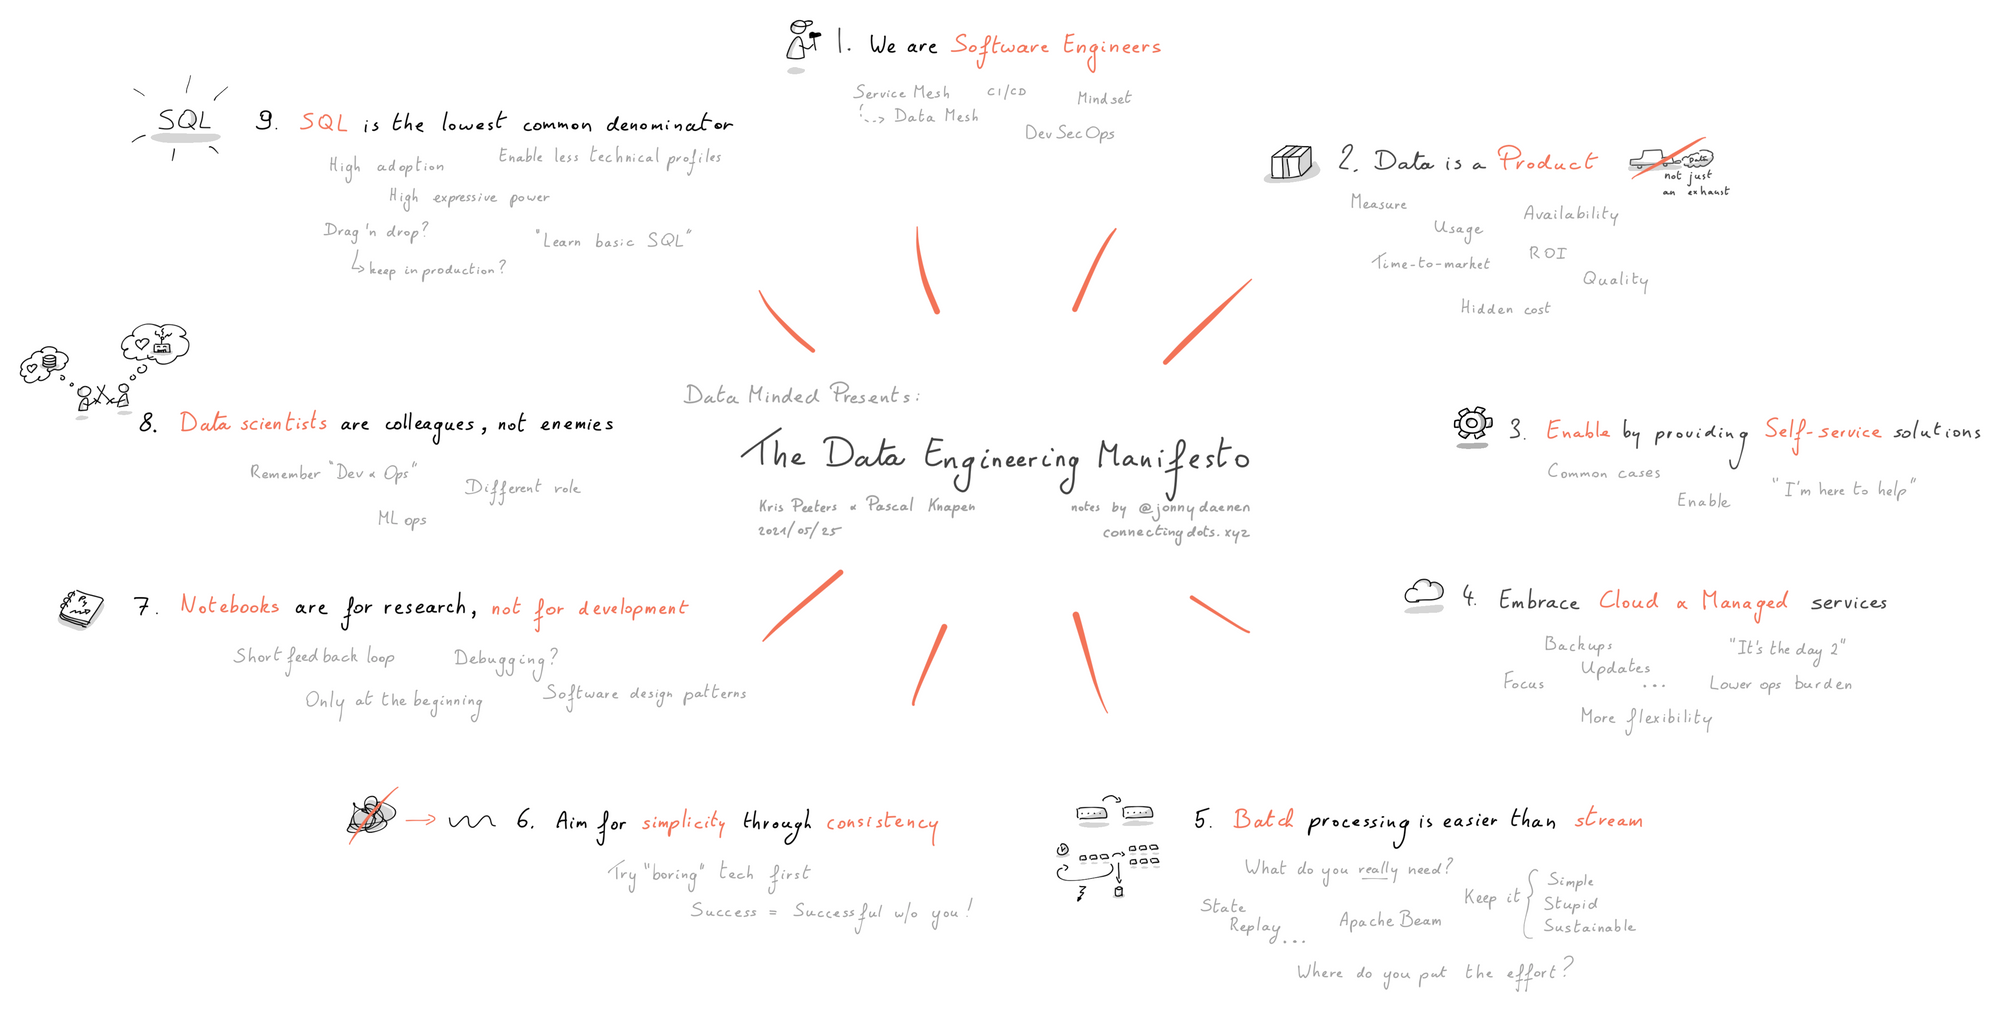 Data Minded Presents:
The Data Engineering Manifesto
Kris Peeters & Pascal Knapen
2021/05/25
notes by @jonnydaenen
connectingdots.xyz
1. We are Software Engineers
Service Mesh
CI/CD
Mindset
Data Mesh
DevSecOps
2. Data is a Product
Data
not just
an exhaust
Measure
Usage
Availability
Time-to-market
ROI
Quality
Hidden cost
3. Enable by providing Self-service solutions
Common cases
Enable
"I'm here to help"
4. Embrace Cloud & Managed services
Backups
Updates
"It's the day 2"
Focus
...
Lower ops burden
More flexibility
5. Batch processing is easier than stream
What do you really need?
Keep it
Simple
Stupid
Sustainable
State
Replay
...
Apache Beam
Where do you put the effort?
6. Aim for simplicity through consistency
Try "boring" tech first
Success = Successful w/o you!
7. Notebooks are for research, not for development
Short feedback loop
Debugging?
Only at the beginning
Software design patterns
8. Data scientists are colleagues, not enemies
Remember "Dev & Ops"
Different role
ML ops
SQL
9. SQL is the lowest common denominator
High adoption
Enable less technical profiles
High expressive power
Drag 'n drop?
keep in production?
"Learn basic SQL"